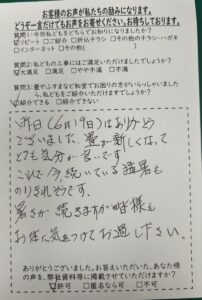 お客様のお声が私たちの励みになります。
どうぞ一言だけでもお声をお寄せください。お待ちしております。
質問1:今回私どもをどちらでお知りになりましたか?
☑リピート □ご紹介 □折込チラシ □その他のチラシ・ハガキ
□インターネット □その他( )
質問2:私どもの工事にはご満足いただけましたでしょうか?
☑大満足 □満足 □やや不満 □不満
質問3:畳やふすまなど和室でお困りの方がいらっしゃいましたら、私どもをご紹介いただけますでしょうか?
☑紹介できる □紹介できない
昨日(6月19日)はありがとう
ございました。畳が新しくなって
とても気分が良いです
これで今続いている猛暑も
のりきれそうです。
暑さが続きますが皆様も
お体に気をつけてお過し下さい。
ありがとうございました。お答えいただいた、あなた様
の声を、弊社資料等に掲載させていただけますか?
☑許可 □匿名なら可 □不可